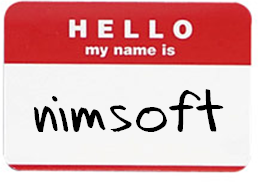 HELLO
my name is
nimsoft